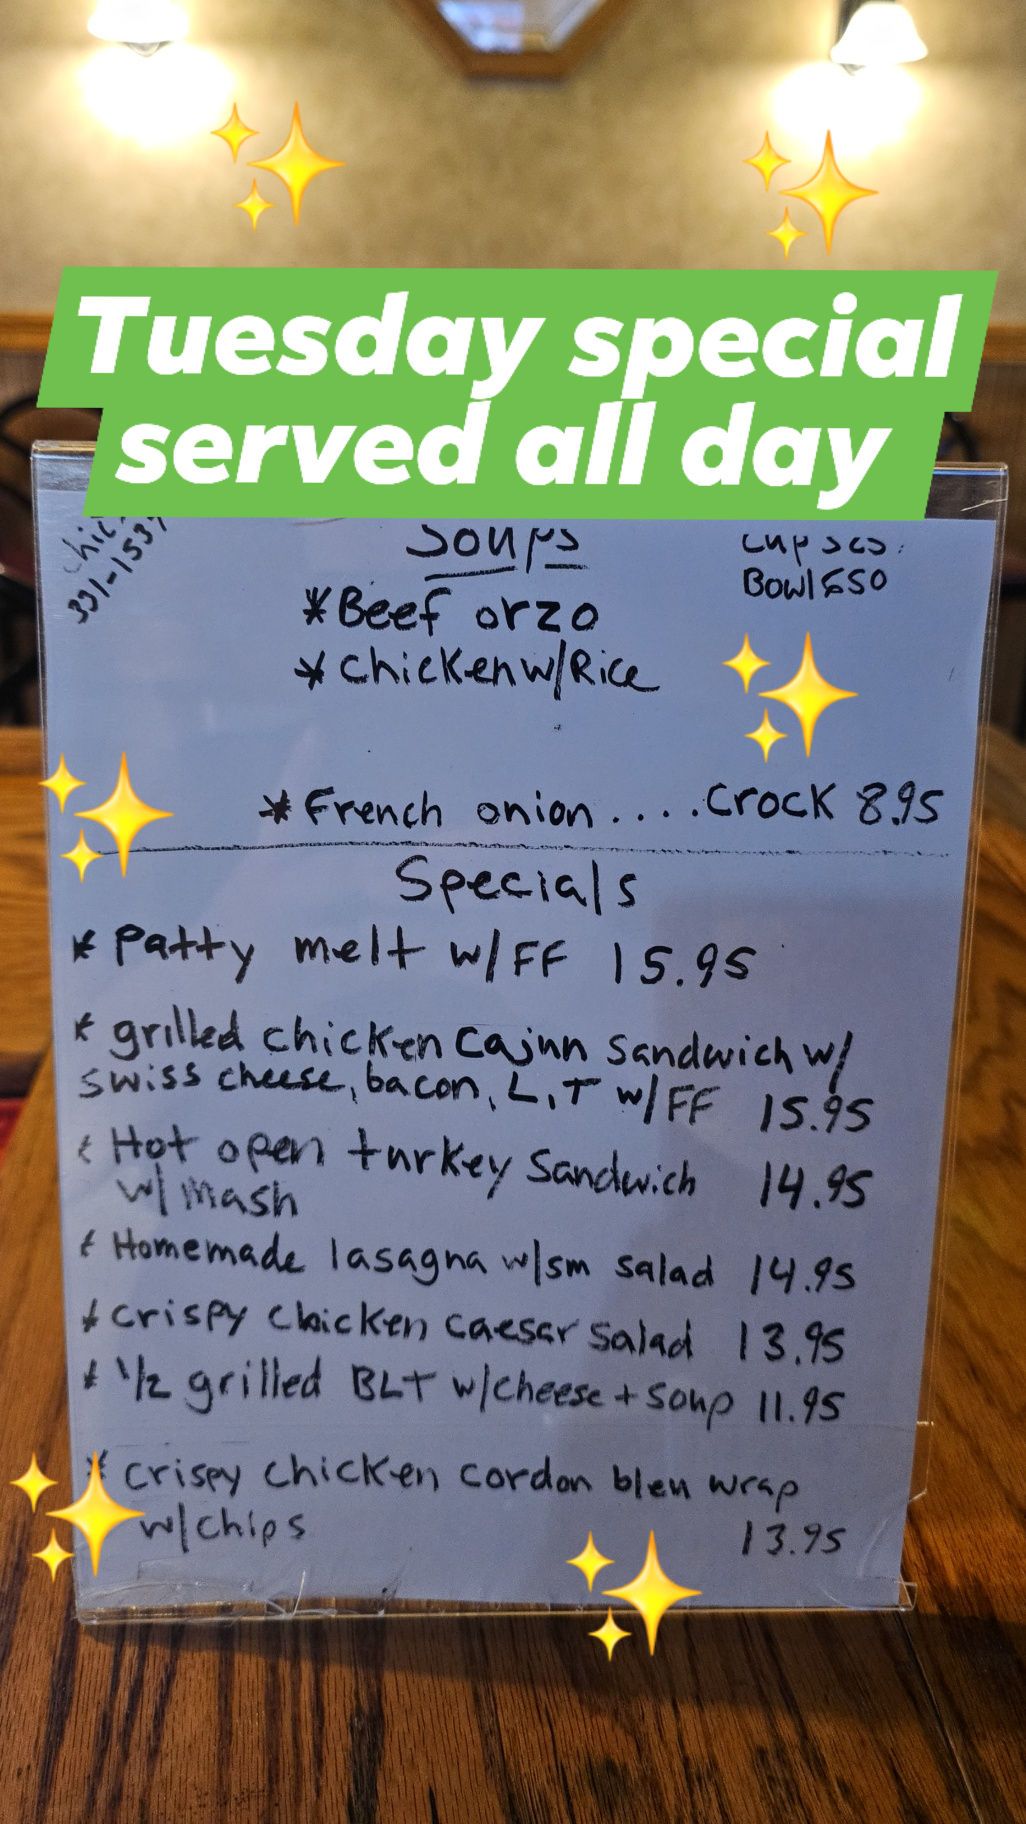 Tuesday special
served all day
331-1537
Soups
Bowl 650
*Beef orzo
*Chicken w/Rice
*French onion.....Crock 8.95
Specials
* Patty melt w/FF 15.95
* grilled chicken Cajun Sandwich w/
swiss cheese, bacon, L,T w/FF 15.95
* Hot open turkey Sandwich 14.95
w/mash
* Homemade lasagna w/sm salad 14.95
* Crispy Chicken Caesar Salad 13.95
* 1/2 grilled BLT w/cheese + Soup 11.95
* Crispy Chicken Cordon bleu wrap
w/chips 13.95